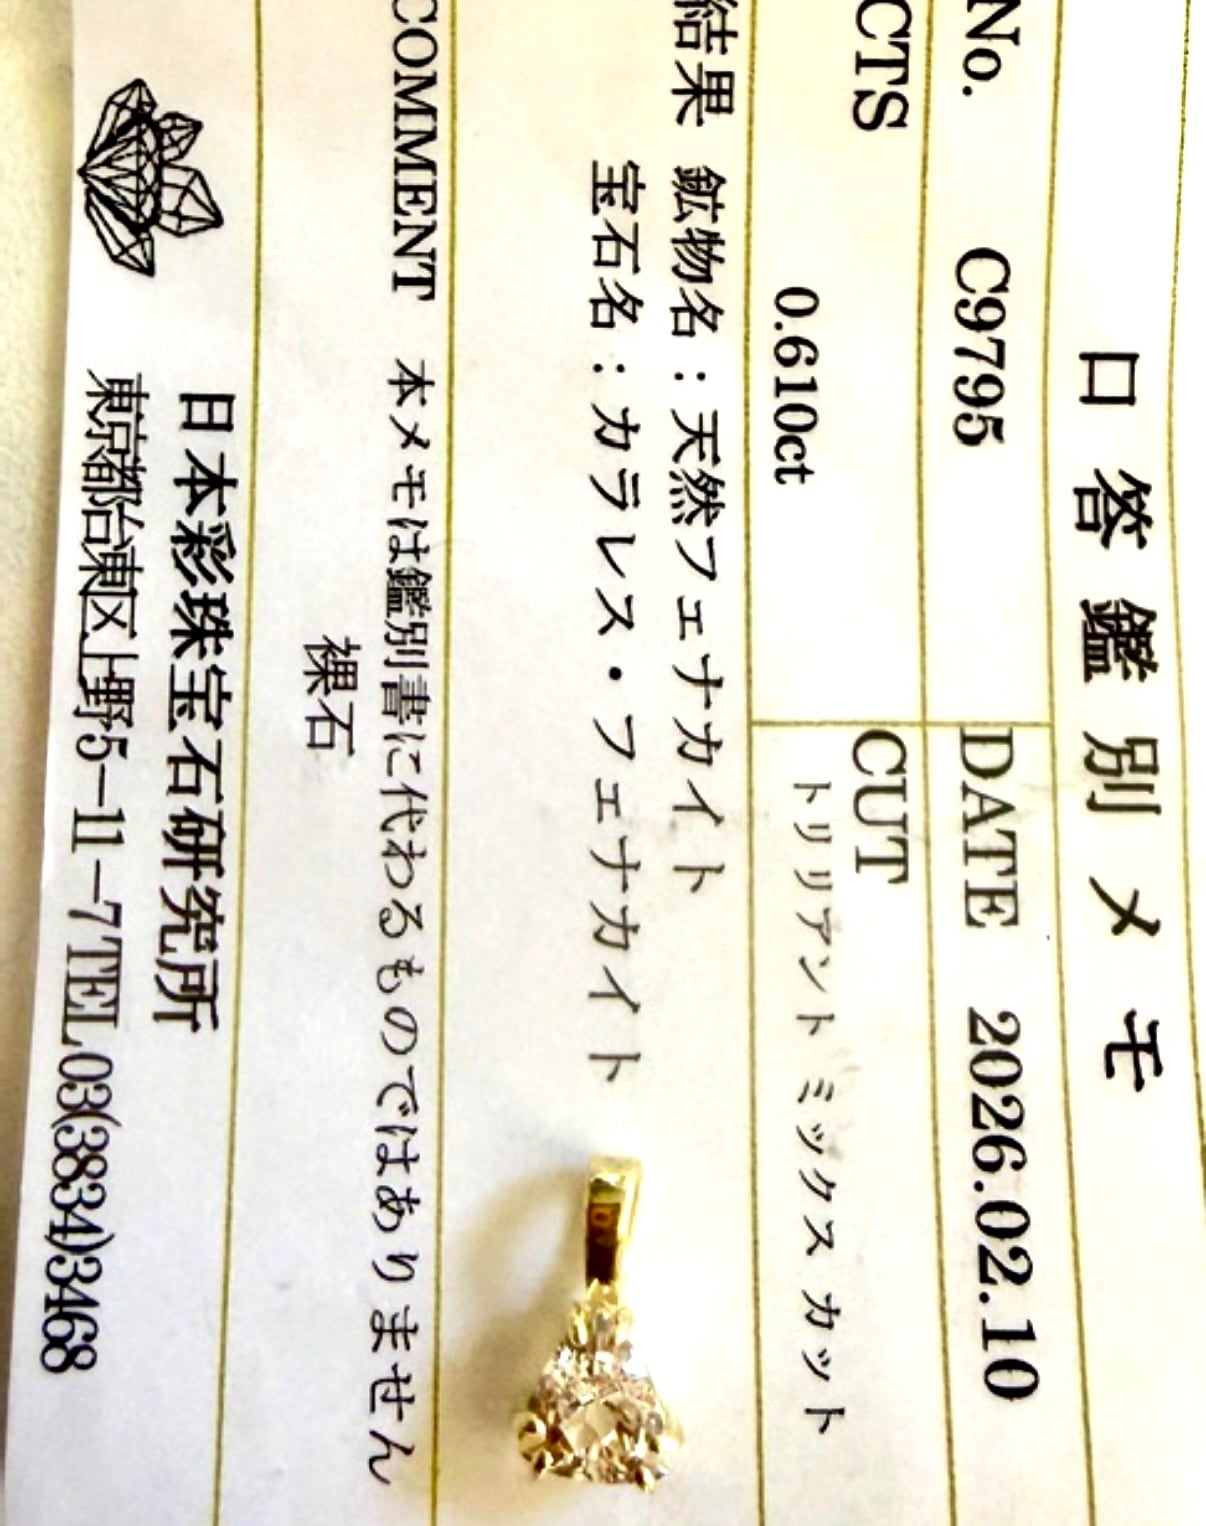 口答鑑別メモ
No. C9795
DATE 2026.02.10
CTS
0.610ct
CUT
トリリアント ミックス カット
結果 鉱物名：天然フェナカイト
宝石名：カラレス・フェナカイト
COMMENT 本メモは鑑別書に代わるものではありません
裸石
日本彩珠宝石研究所
東京都台東区上野5-11-7 TEL03(3834)3468